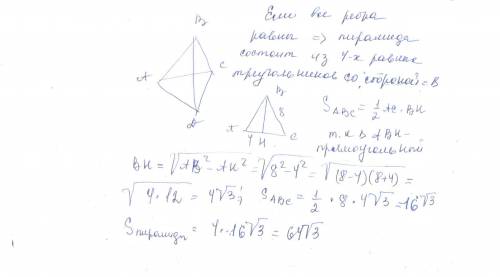 Если все ребра
равны => пирамида
состоит из 4-х равных
треугольников со стороной = 8
B
A
C
D
B
8
A
4
H
C
S_ABC = 1/2 AC · BH
т.к. в ABH -
прямоугольной
BH = √(AB² - AH²) = √(8² - 4²) = √((8-4)(8+4)) =
√(4 · 12) = 4√3; S_ABC = 1/2 · 8 · 4√3 = 16√3
S пирамиды = 4 · 16√3 = 64√3